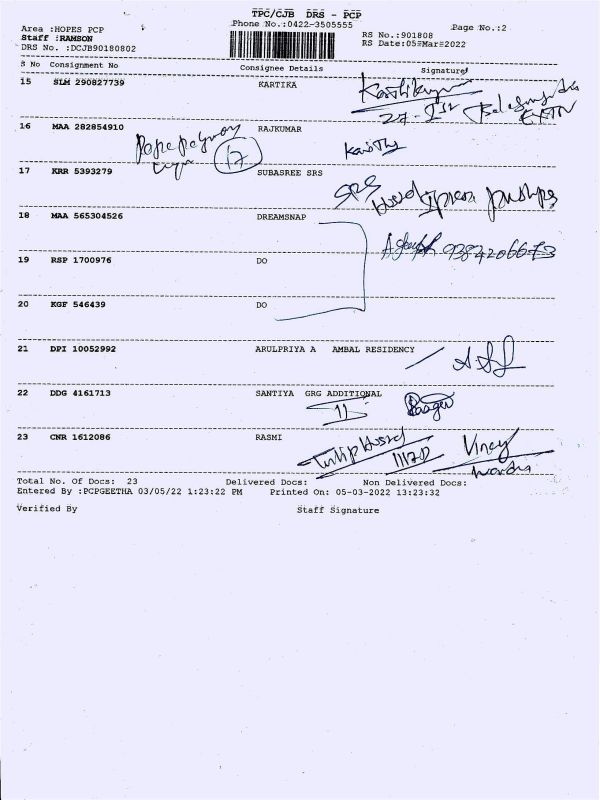 TPC/CJB DRS - PCP
Area :HOPES PCP Phone No.:0422-3505555 Page No.:2
Staff :RAMSON RS No.:901808
DRS No. :DCJB90180802 RS Date:05=Mar=2022
S No Consignment No Consignee Details Signature
15 SLM 290827739 KARTIKA
16 MAA 282854910 RAJKUMAR
17
17 KRR 5393279 SUBASREE SRS
SRS
18 MAA 565304526 DREAMSNAP
19 RSP 1700976 DO
20 KGF 546439 DO
21 DPI 10052992 ARULPRIYA A AMBAL RESIDENCY
22 DDG 4161713 SANTIYA GRG ADDITIONAL
11
23 CNR 1612086 RASMI
Total No. Of Docs: 23 Delivered Docs: Non Delivered Docs:
Entered By :PCPGEETHA 03/05/22 1:23:22 PM Printed On: 05-03-2022 13:23:32
Verified By Staff Signature